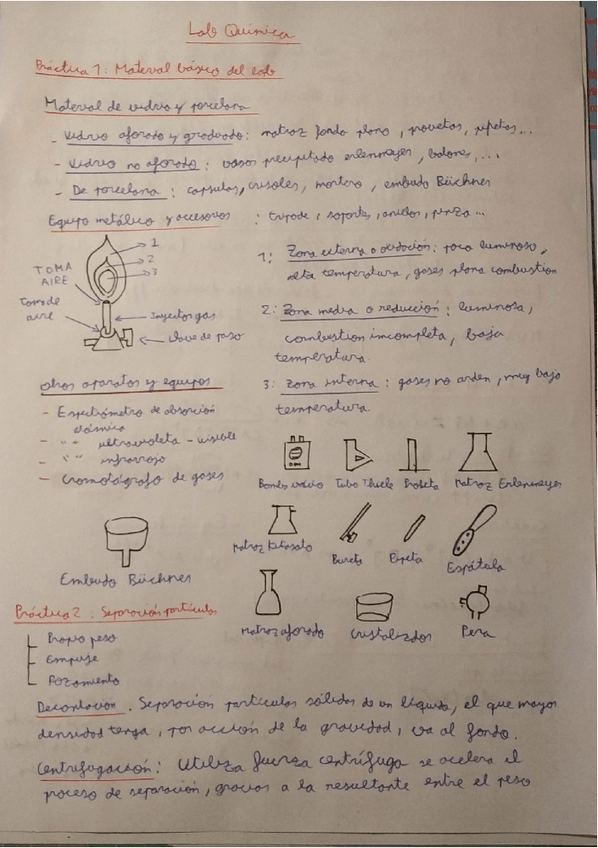 Lab Química
Práctica 1: Material básico del lab
Material de vidrio y porcelana
- Vidrio aforado y graduado: matraz fondo plano, provetas, pipetas...
- Vidrio no aforado: vasos precipitado erlenmeyer, balones,...
- De porcelana: capsulas, crisoles, mortero, embudo Büchner
Equipo metálico y accesorios: tripode, soportes, anuelos, pinza...
1
2
3
TOMA
AIRE
Toma de
aire
Inyector gas
Llave de paso
1: Zona externa o oxidación: poca luminoso,
alta temperatura, gases plena combustion
2: Zona media o reducción: luminosa,
combustion incompleta, baja
temperatura.
3: Zona interna: gases no arden, muy baja
temperatura
Otros aparatos y equipos
- Espectrómetro de absorción
atómica
- " " ultravioleta - visible
- " " infrarrojo
- Cromatógrafo de gases
Bomba vacío Tubo Thiele Probeta Matraz Erlenmeyer
Matraz Kitasato Bureta Pipeta Espátula
Embudo Büchner
Matraz aforado Cristalizador Pera
Práctica 2: Separación partículas
Propio peso
Empuje
Rozamiento
Decantacion. Separación partículas sólidas de un líquido, el que mayor
densidad tenga, por acción de la gravedad, va al fondo.
Centrifugación: Utiliza fuerza centrífuga se acelera el
proceso de separación, gracias a la resultante entre el peso